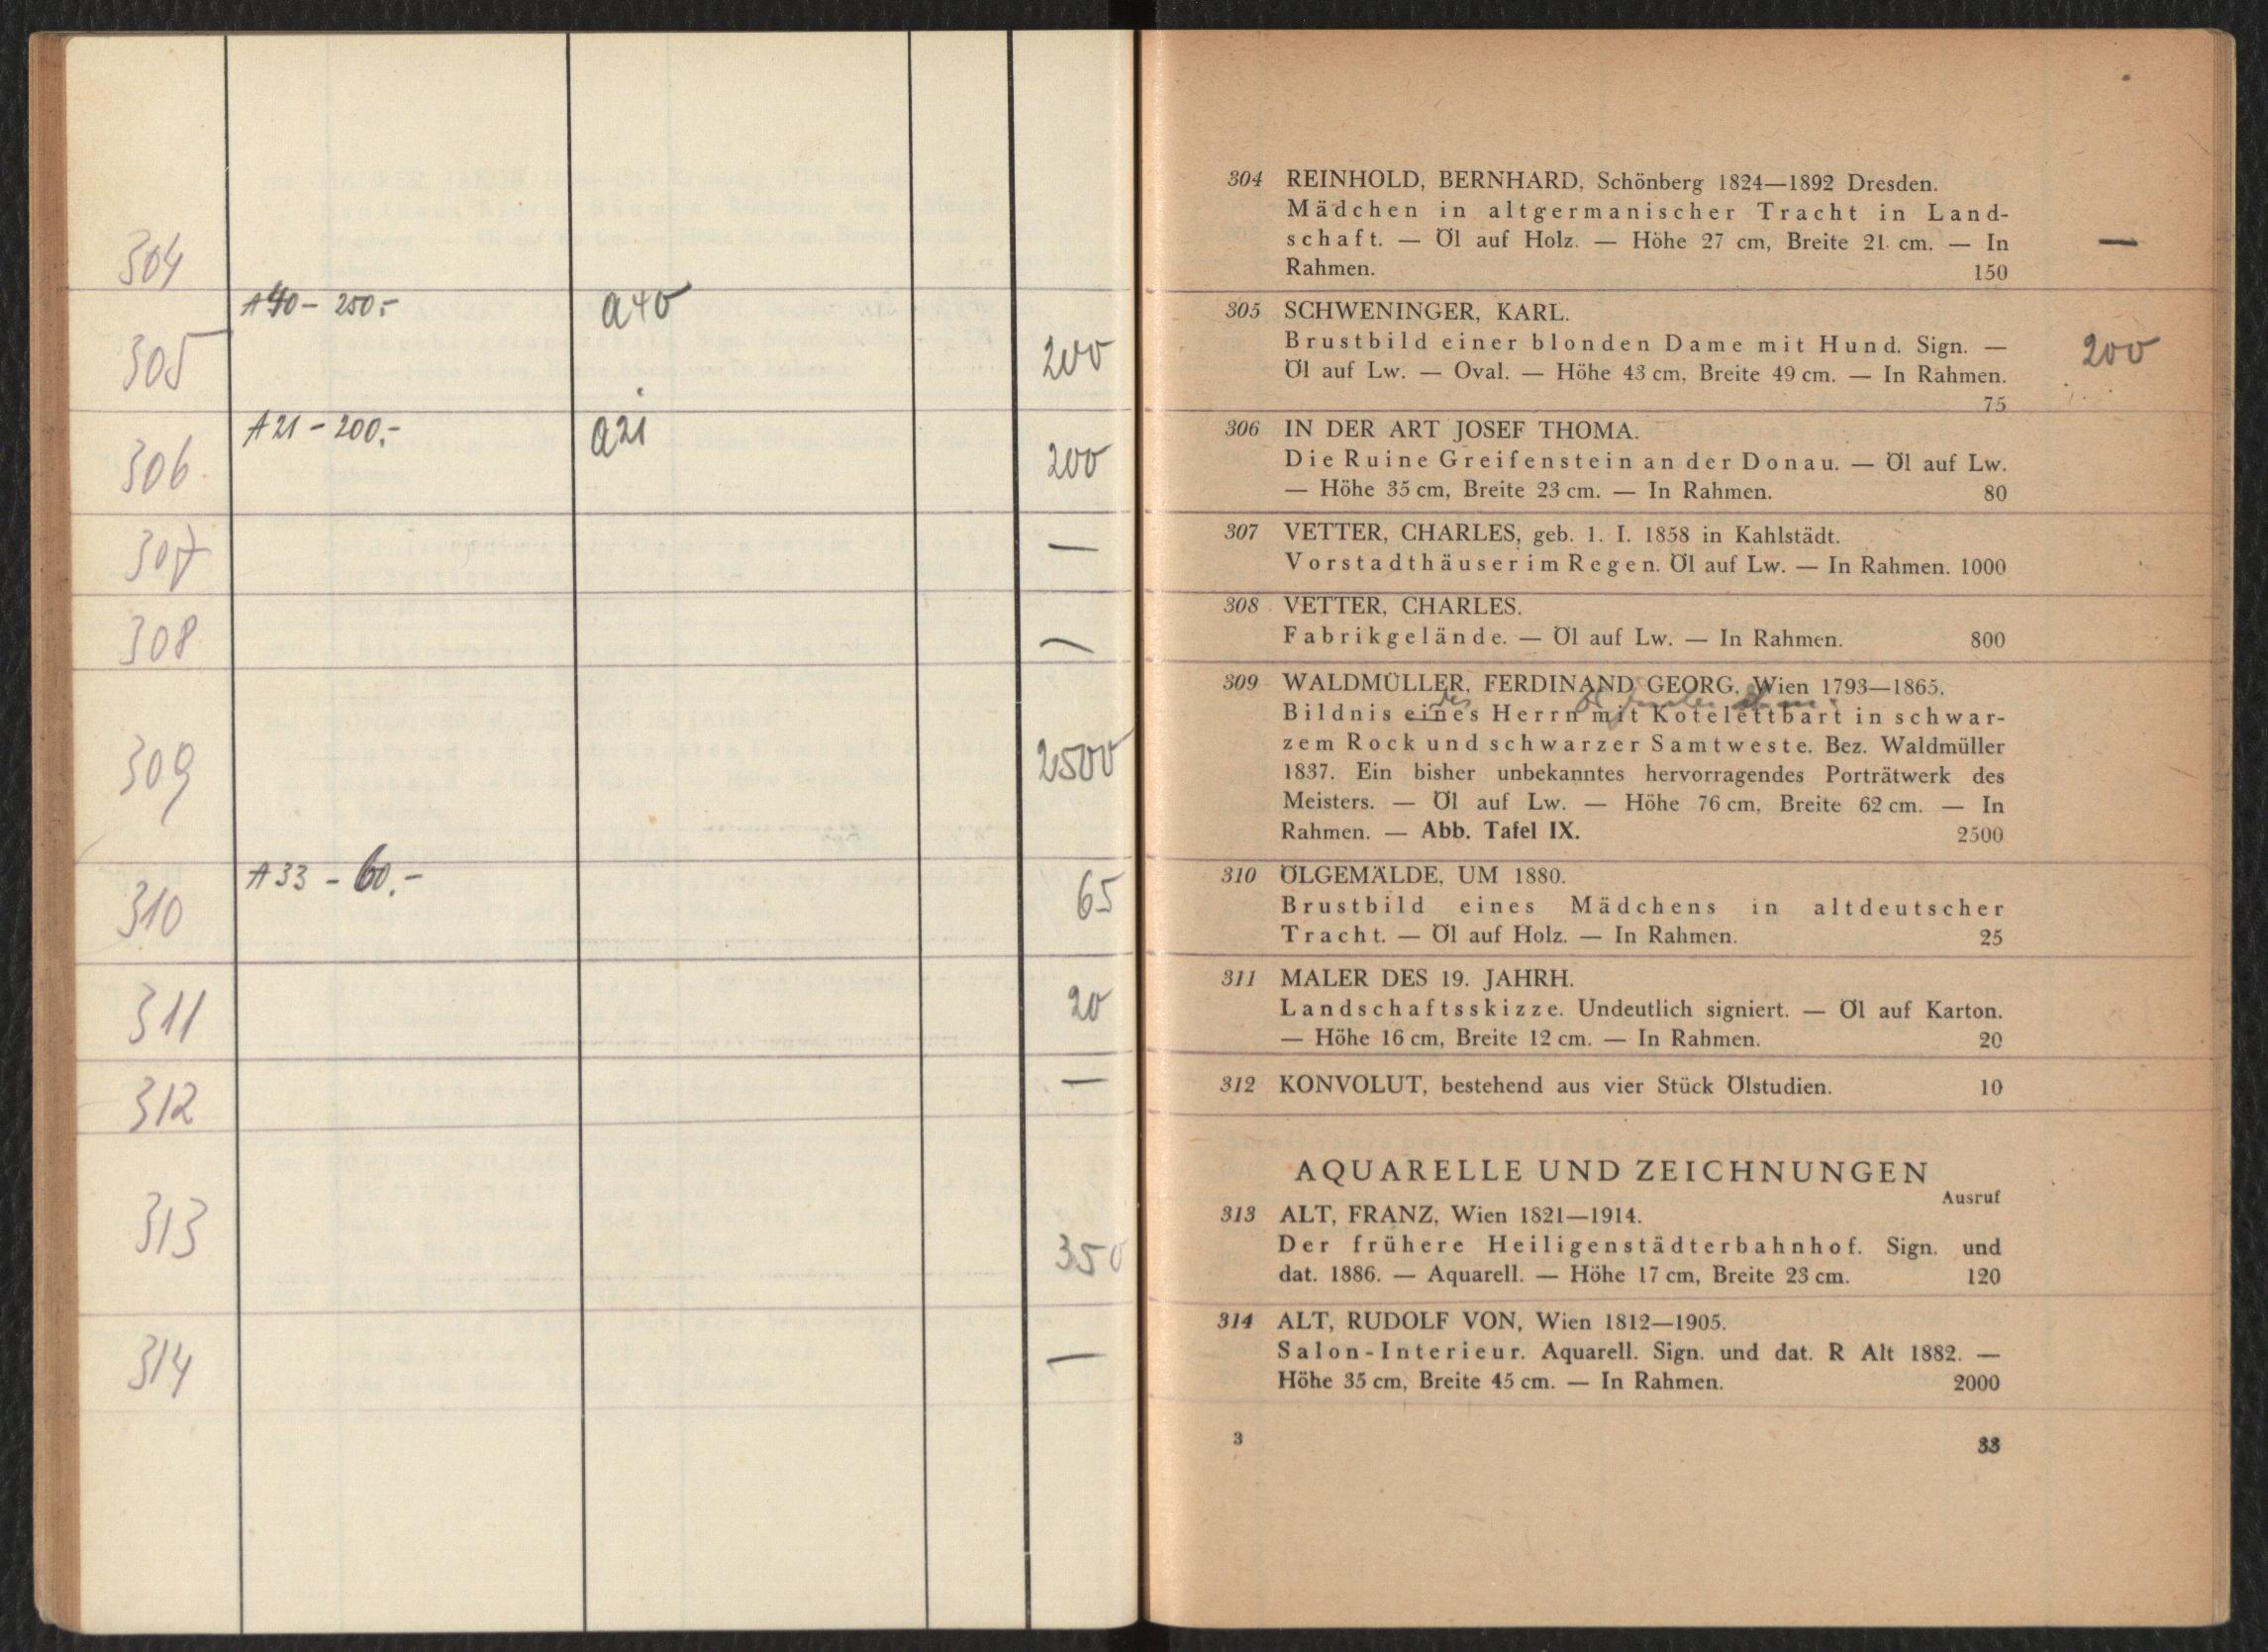 304
A40 - 250.-
a40
305
200
A21 - 200.-
a21
306
200
307
—
308
—
309
2500
A33 - 60.-
310
65
311
20
312
—
313
350
314
—
304 REINHOLD, BERNHARD, Schönberg 1824—1892 Dresden.
Mädchen in altgermanischer Tracht in Land-
schaft. — Öl auf Holz. — Höhe 27 cm, Breite 21 cm. — In —
Rahmen. 150
305 SCHWENINGER, KARL.
Brustbild einer blonden Dame mit Hund. Sign. — 200
Öl auf Lw. — Oval. — Höhe 43 cm, Breite 49 cm. — In Rahmen.
75
306 IN DER ART JOSEF THOMA.
Die Ruine Greifenstein an der Donau. — Öl auf Lw.
— Höhe 35 cm, Breite 23 cm. — In Rahmen. 80
307 VETTER, CHARLES, geb. 1. I. 1858 in Kahlstädt.
Vorstadthäuser im Regen. Öl auf Lw. — In Rahmen. 1000
308 VETTER, CHARLES.
Fabrikgelände. — Öl auf Lw. — In Rahmen. 800
309 WALDMÜLLER, FERDINAND GEORG, Wien 1793—1865.
des
Bildnis eines Herrn mit Kotelettbart in schwar-
zem Rock und schwarzer Samtweste. Bez. Waldmüller
1837. Ein bisher unbekanntes hervorragendes Porträtwerk des
Meisters. — Öl auf Lw. — Höhe 76 cm, Breite 62 cm. — In
Rahmen. — Abb. Tafel IX. 2500
310 ÖLGEMÄLDE, UM 1880.
Brustbild eines Mädchens in altdeutscher
Tracht. — Öl auf Holz. — In Rahmen. 25
311 MALER DES 19. JAHRH.
Landschaftsskizze. Undeutlich signiert. — Öl auf Karton.
— Höhe 16 cm, Breite 12 cm. — In Rahmen. 20
312 KONVOLUT, bestehend aus vier Stück Ölstudien. 10
AQUARELLE UND ZEICHNUNGEN
Ausruf
313 ALT, FRANZ, Wien 1821—1914.
Der frühere Heiligenstädterbahnhof. Sign. und
dat. 1886. — Aquarell. — Höhe 17 cm, Breite 23 cm. 120
314 ALT, RUDOLF VON, Wien 1812—1905.
Salon-Interieur. Aquarell. Sign. und dat. R Alt 1882. —
Höhe 35 cm, Breite 45 cm. — In Rahmen. 2000
3 33